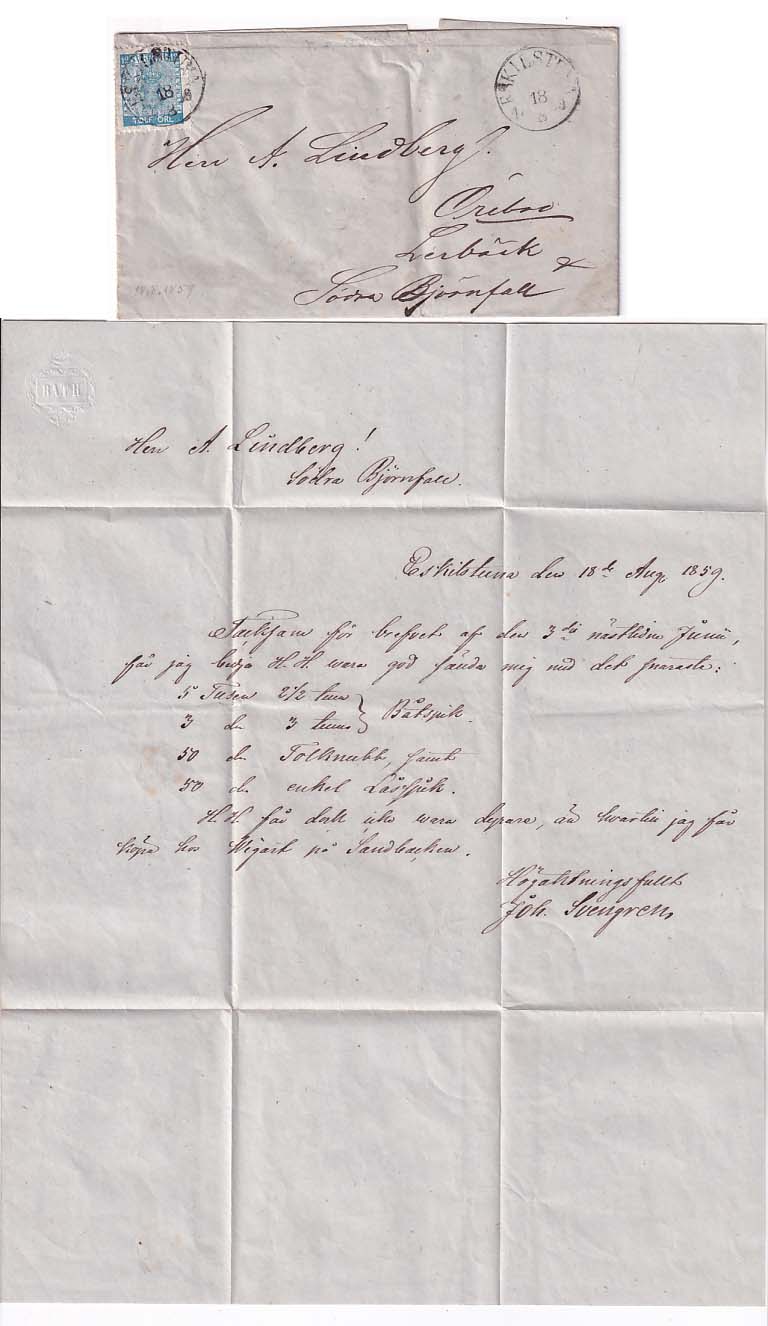 ESKILSTUNA
18
8
TOLF ÖRE
ESKILSTUNA
18
8
Herr A. Lindberg
Örebro
Lerbäck &
Södra Björnfall
18.8.1859
BATH
Herr A Lindberg!
Södra Björnfall.
Eskilstuna den 18de Aug 1859.
Tacksam för brefvet af den 3die nästlidne Junii,
får jag bedja H.H. wara god sända mig med det snaraste:
5 Tusen 2 1/2 tums
3 do 3 tums } Båtspik.
50 do Tolknubb, samt
50 do enkel Låsspik.
H.H får dock icke wara dyrare, än hvartill jag får
köpa hos Wigart på Sandbacken.
Högaktningsfullt
Joh. Svengren